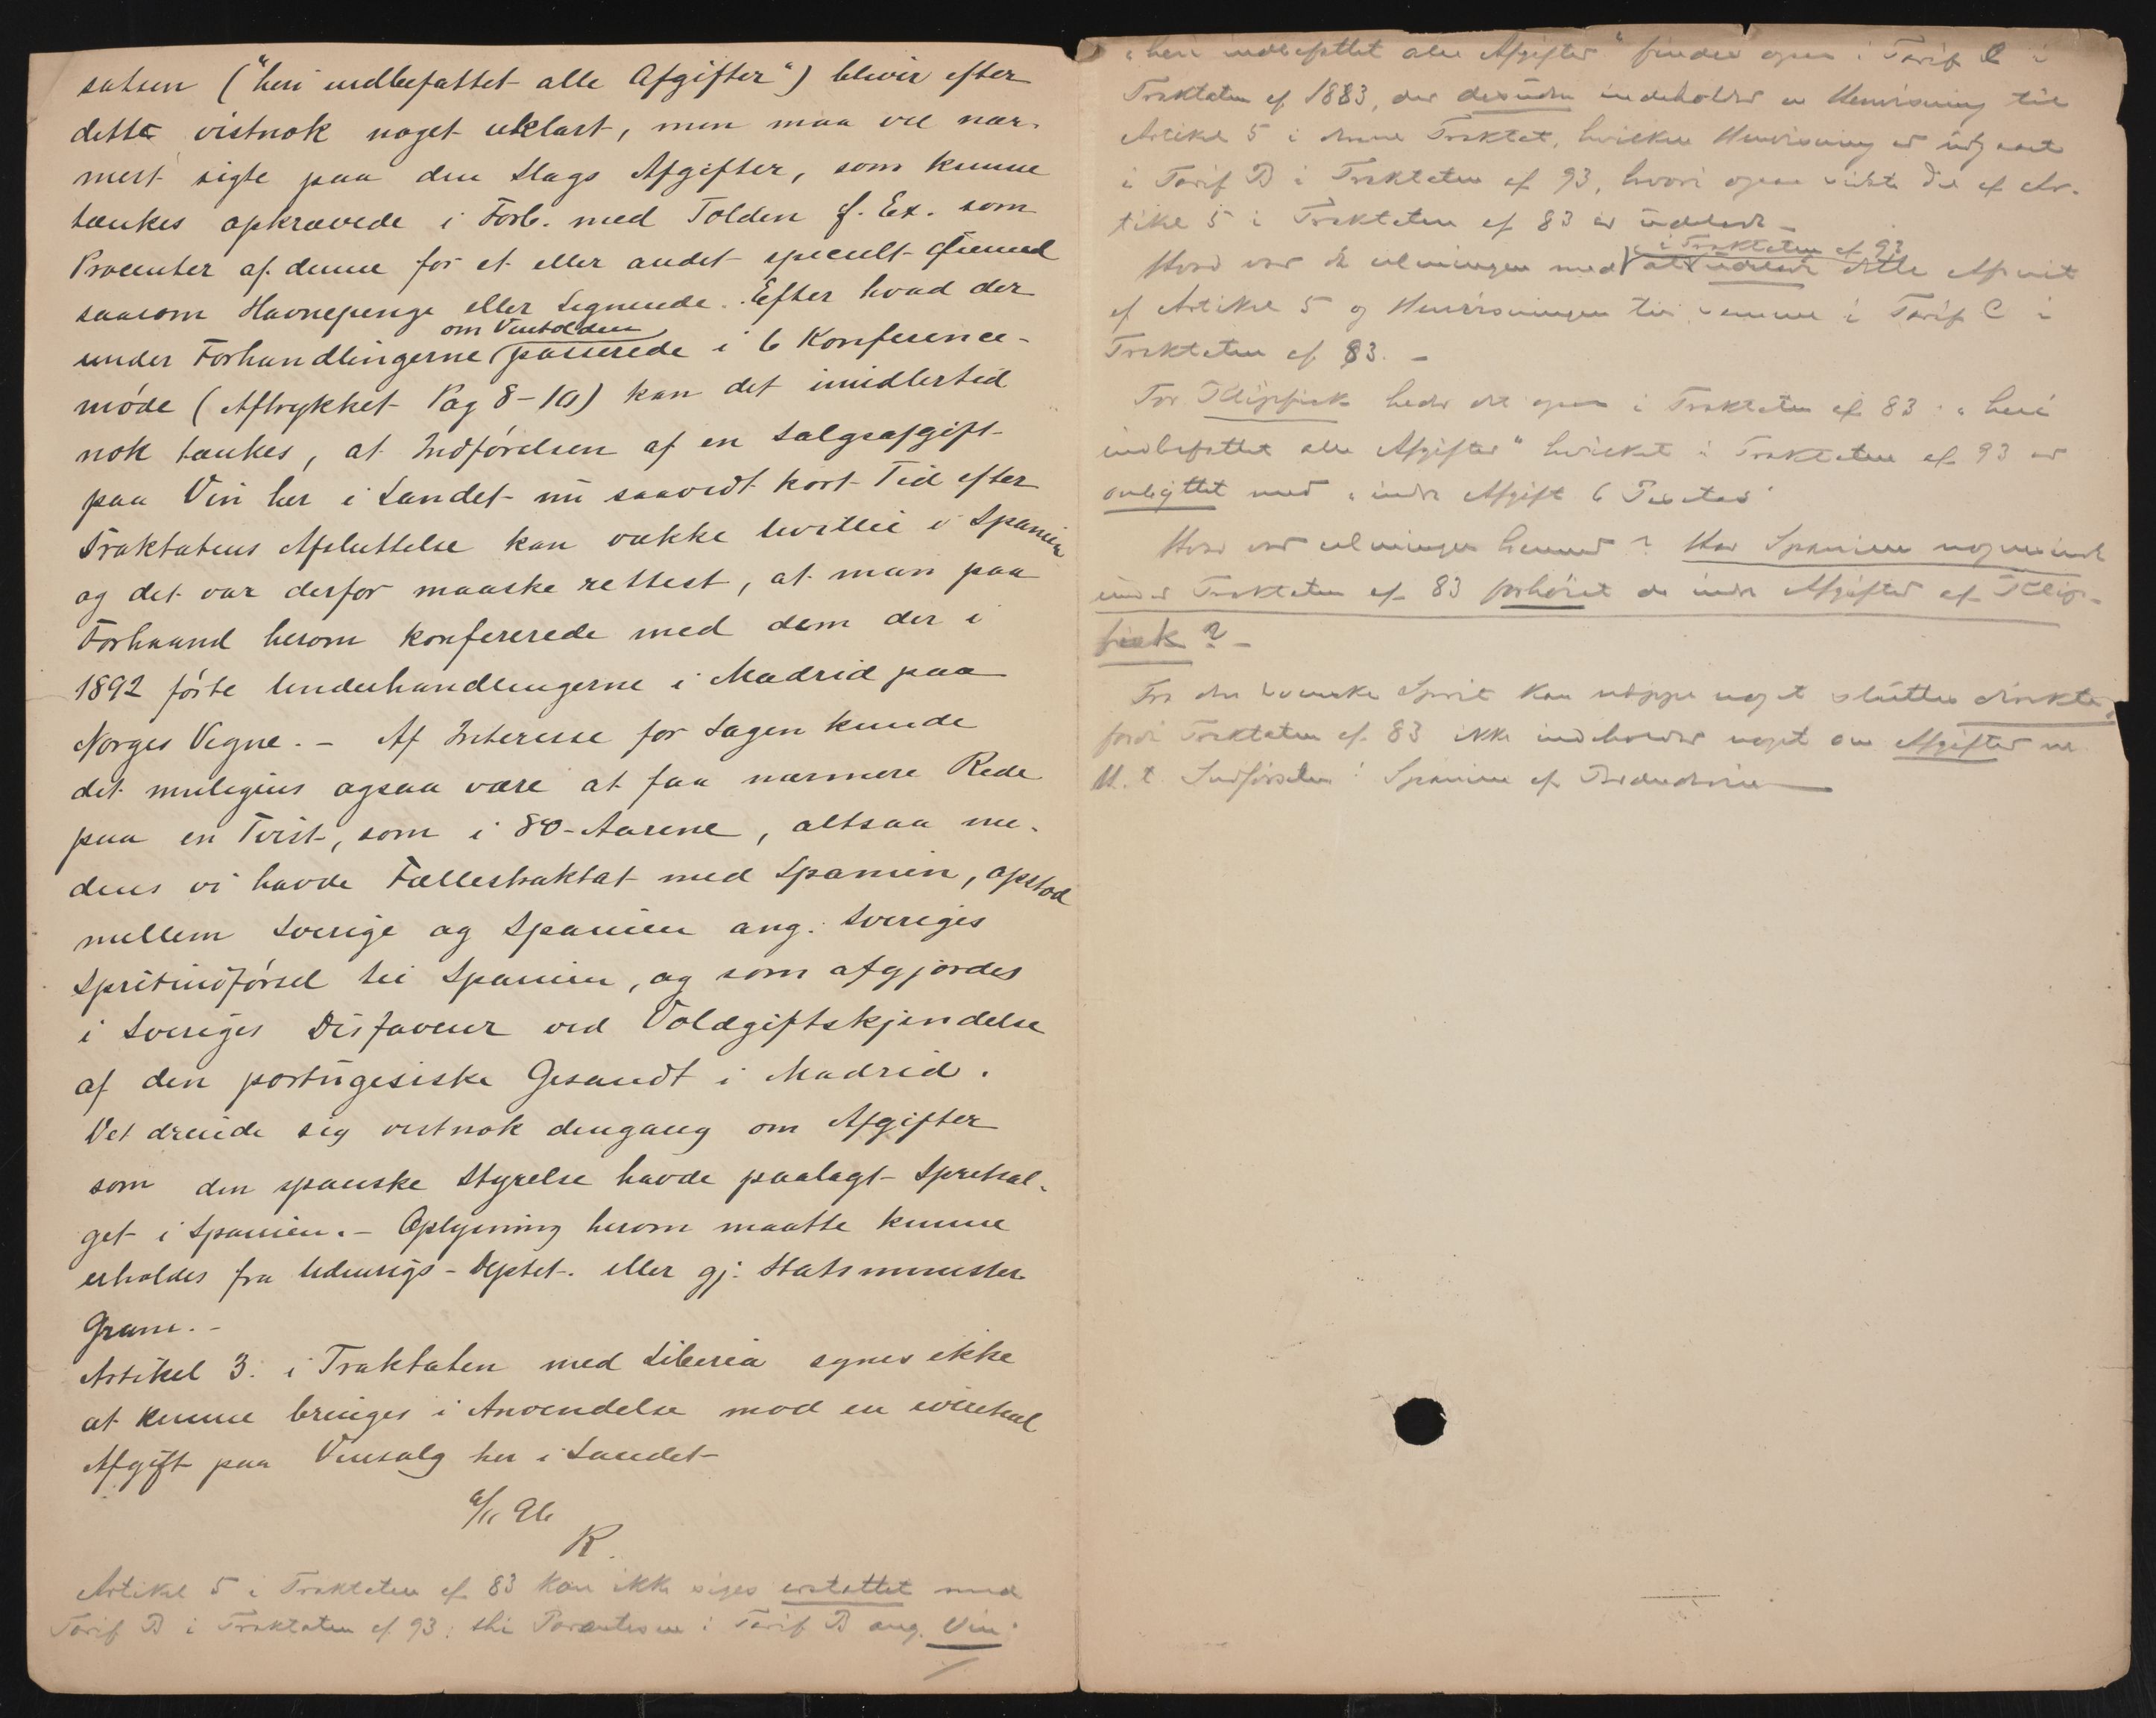 satsen ("heri indbefattet alle Afgifter") blivir efter
dette vistnok noget uklart, men maa vel nær-
mest sigte paa den Slags Afgifter, som kunne
tænkes opkrævede i Forb. med Tolden f. Ex. som
Procenter af denne for et eller andet specielt Øiemed
saasom Havnepenge eller Lignende. Efter hvad der
om Vintolden
under Forhandlingerne passerede i 6 Konference-
møde (Aftrykket Pag 8-10) kan det imidlertid
nok tænkes, at Indførelsen af en Salgsafgift
paa Vin her i Landet nu saavidt kort Tid efter
Traktatens Afsluttelse kan vække Uvillie i Spanien
og det var derfor maaske rettest, at man paa
Forhaand herom konfererede med dem der i
1892 førte Underhandlingerne i Madrid paa
Norges Vegne. - Af Interesse for Sagen kunde
det muligens ogsaa være at faa nærmere Rede
paa en Tvist, som i 80-Aarene, altsaa me-
dens vi havde Fællestraktat med Spanien, opstod
mellem Sverige og Spanien ang. Sveriges
Spritindførsel til Spanien, og som afgjordes
i Sveriges Disfaveur ved Voldgiftskjendelse
af den portugisiske Gesandt i Madrid.
Det dreiede sig vistnok dengang om Afgifter
som den spanske Styrelse havde paalagt Spritsal-
get i Spanien. - Oplysning herom maatte kunne
erholdes fra Udenrigs-Deptet. eller gj. Statsminister
Gram. -
Artikel 3. i Traktaten med Liberia synes ikke
at kunne bringes i Anvendelse mod en eventuel
Afgift paa Vinsalg her i Landet
6/11 96
R.
Artikel 5 i Traktaten af 83 kan ikke siges erstattet med
Tarif B i Traktaten af 93; thi Parantesen i Tarif B ang. Vin:
"heri indbefattet alle Afgifter" findes ogsaa i Tarif C i
Traktaten af 1883, der desuden indeholder en Henvisning til
Artikel 5 i denne Traktat, hvilken Henvisning er udgaaet
i Tarif B i Traktaten af 93, hvori ogsaa sidste Del af Ar-
tikel 5 i Traktaten af 83 er udeladt -
i Traktaten af 93
Hvad var da meningen med at udelade dette Afsnit
af Artikel 5 og Henvisningen til samme i Tarif C i
Traktaten af 83. -
For Klipfisk heder det ogsaa i Traktaten af 83: "heri
indbefattet alle Afgifter" hvilket i Traktaten af 93 er
ombyttet med "indre Afgift 6 Pesetas"
Hvad var meningen hermed? Har Spanien nogensinde
under Traktaten af 83 forhøiet de indre Afgifter af Klip-
fisk? -
Fra den svenske Sprit kan neppe noget sluttes direkte,
fordi Traktaten af 83 ikke indeholder noget om Afgifter m.
H. t. Indførselen i Spanien af Brændevin